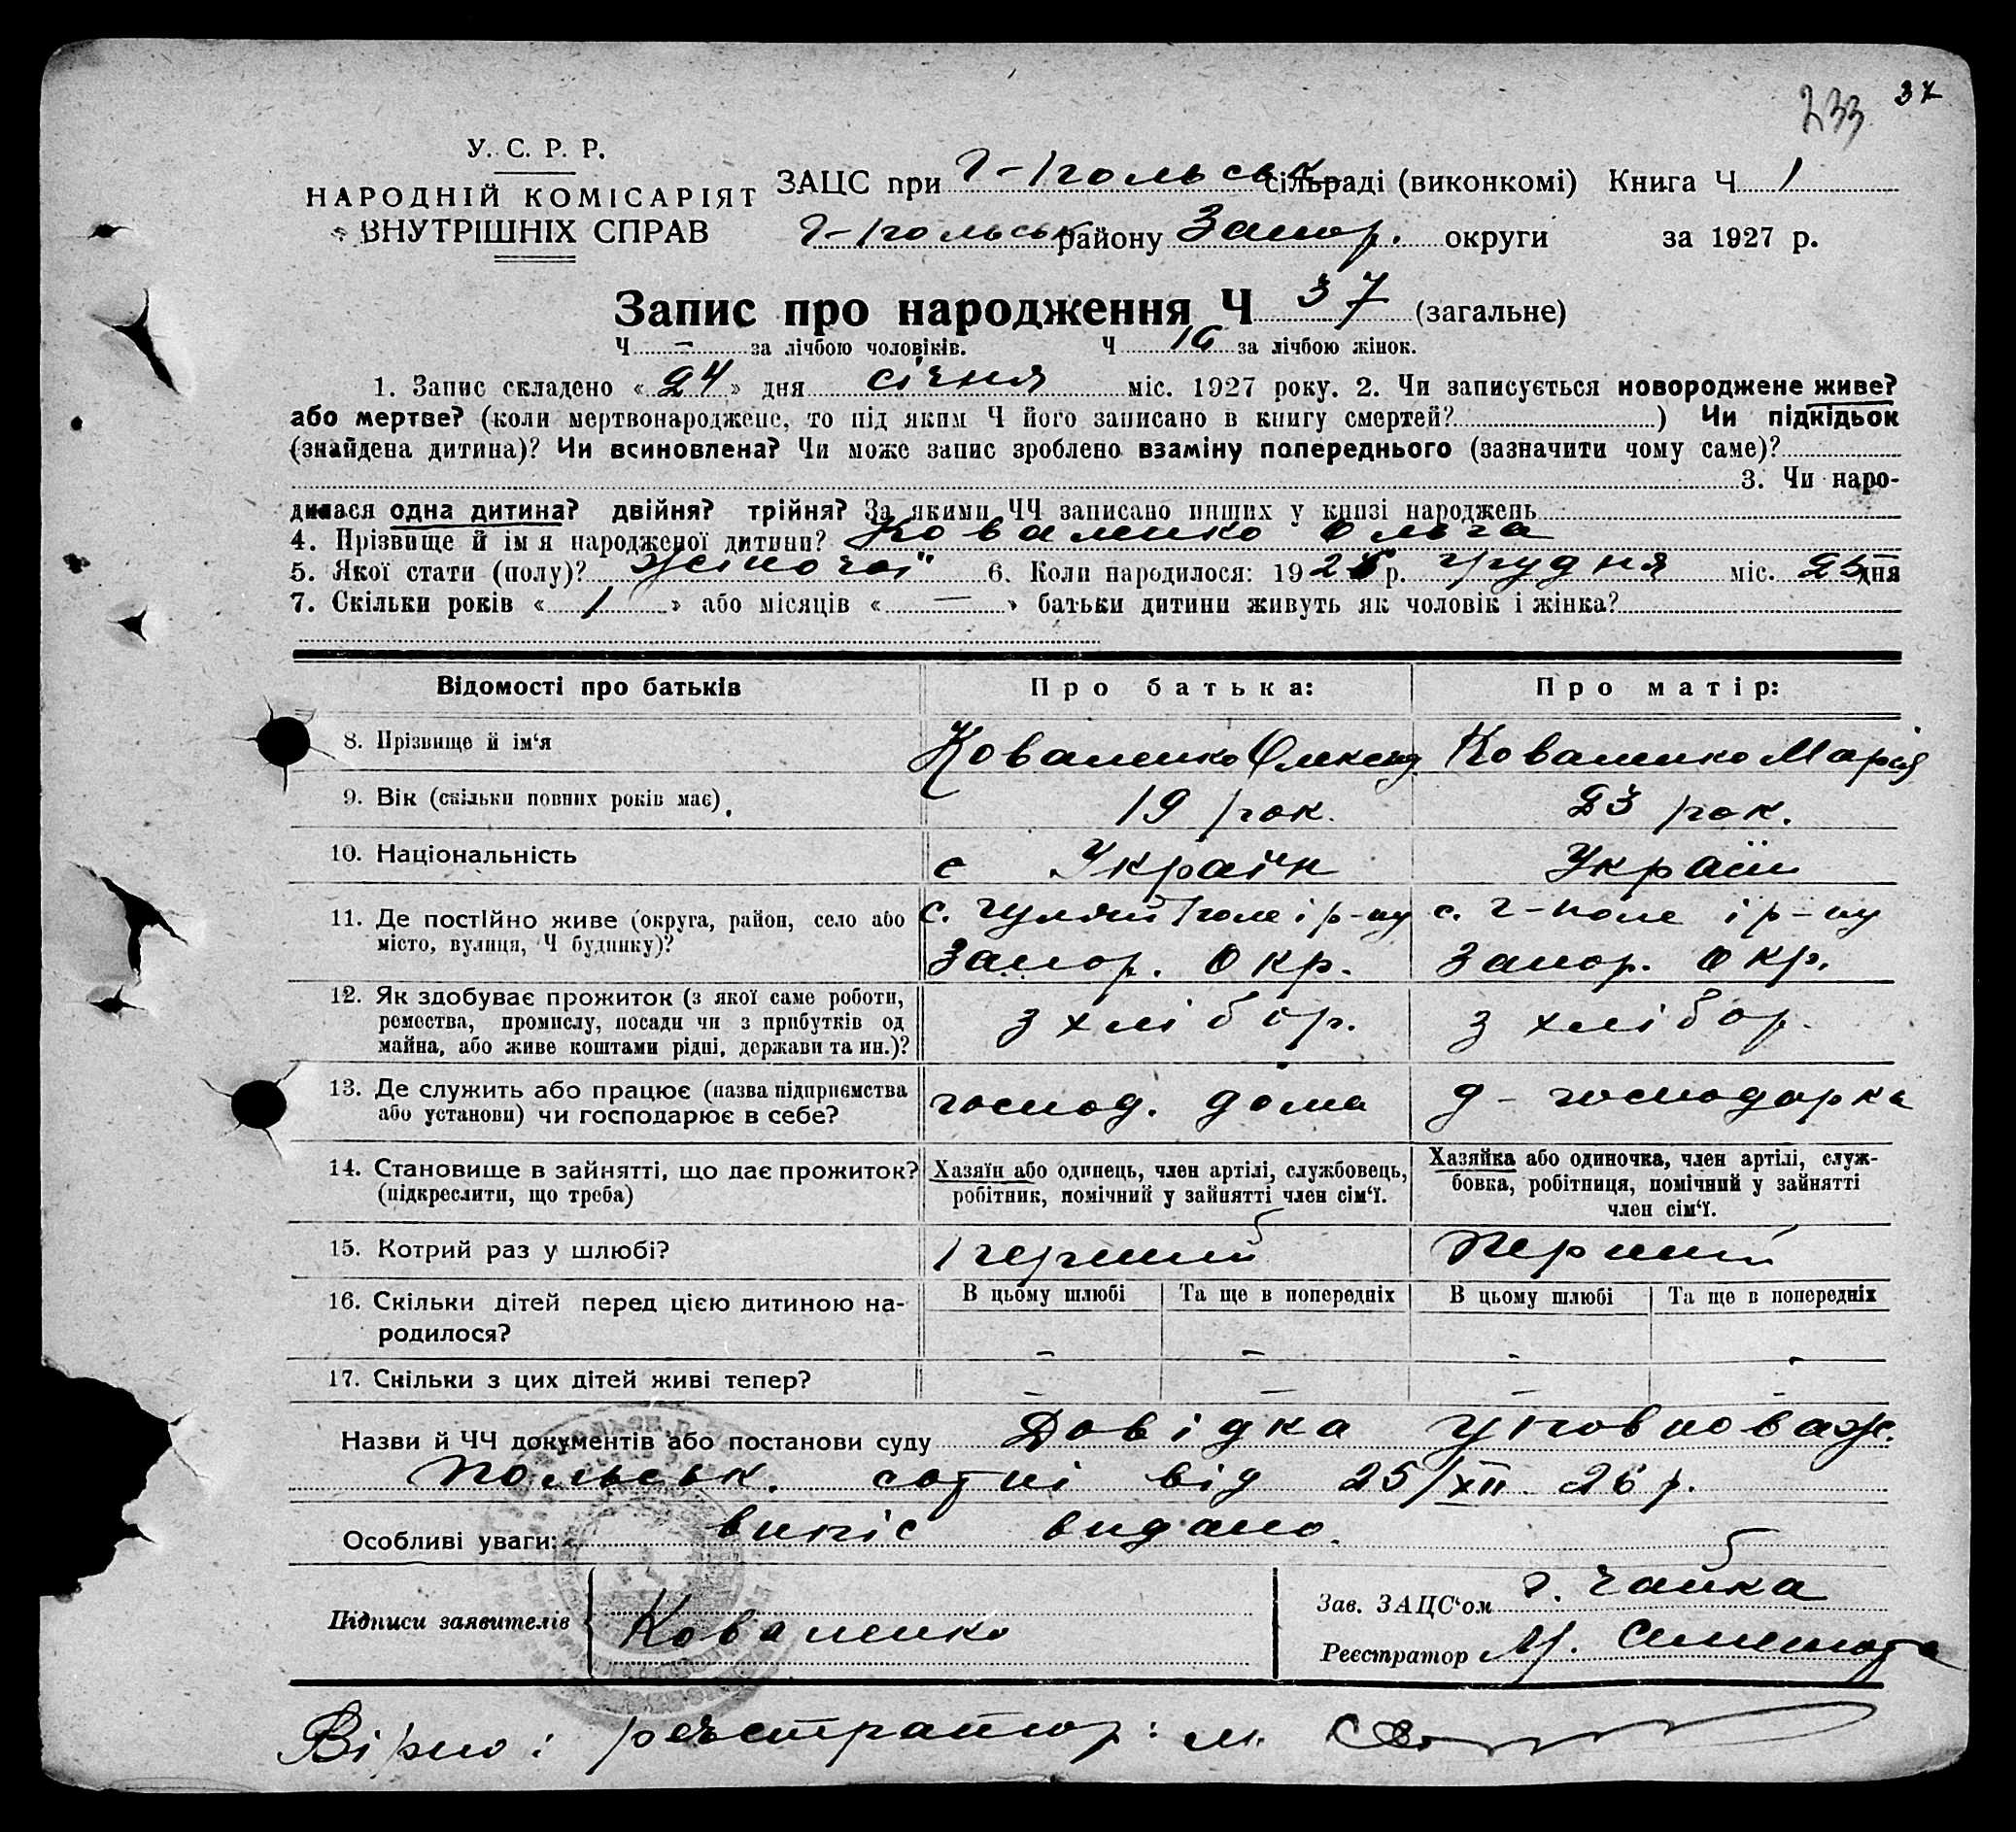 233 37
У. С. Р. Р.
НАРОДНІЙ КОМІСАРІЯТ
ВНУТРІШНІХ СПРАВ
ЗАЦС при Г-Польськ сільраді (виконкомі) Книга Ч 1
Г-Польськ району Запор. округи за 1927 р.
Запис про народження Ч 37 (загальне)
Ч – за лічбою чоловіків. Ч 16 за лічбою жінок.
1. Запис складено «24» дня січня міс. 1927 року. 2. Чи записується новороджене живе?
або мертве? (коли мертвонароджене, то під яким Ч його записано в книгу смертей?) Чи підкідьок
(знайдена дитина)? Чи всиновлена? Чи може запис зроблено взаміну попереднього (зазначити чому саме)?
3. Чи наро-
дилася одна дитина? двійня? трійня? За якими ЧЧ записано инших у книзі народжень
4. Прізвище й ім я народженої дитини? Коваленко Ольга
5. Якої стати (полу)? Жіночої 6. Коли народилося: 1926 р. грудня міс. 25 дня
7. Скільки років « 1 » або місяців « — » батьки дитини живуть як чоловік і жінка?
Відомості про батьків Про батька: Про матір:
8. Прізвище й ім‘я Коваленко Олександ Коваленко Марія
9. Вік (скільки повних років має) 19 рок. 23 рок.
10. Національність Україн Україн
11. Де постійно живе (округа, район, село або с. Гуляй Поле і р-ну с. Г-Поле і р-ну
місто, вулиця, Ч будинку)? Запор. Окр. Запор. Окр.
12. Як здобуває прожиток (з якої саме роботи,
ремества, промислу, посади чи з прибутків од з хлібор. з хлібор.
майна, або живе коштами рідні, держави та ин.)?
13. Де служить або працює (назва підприємства господ. дома д-господарка
або установи) чи господарює в себе?
14. Становище в зайнятті, що дає прожиток? Хазяїн або одинець, член артілі, службовець, Хазяйка або одиночка, член артілі, служ-
(підкреслити, що треба) робітник, помічний у зайнятті член сім‘ї. бовка, робітниця, помічний у зайнятті
член сім‘ї.
15. Котрий раз у шлюбі? Перший Перший
16. Скільки дітей перед цією дитиною на- В цьому шлюбі Та ще в попередніх В цьому шлюбі Та ще в попередніх
родилося? – – – –
17. Скільки з цих дітей живі тепер? – – – –
Назви й ЧЧ документів або постанови суду Довідка Уповноваж.
Польськ. сотні від 25/XII 26 р.
Особливі уваги: випіс видано.
Підписи заявителів Коваленко
Зав. ЗАЦС‘ом Г. Чайка
Реєстратор М.
Вірно: реєстратор: М.